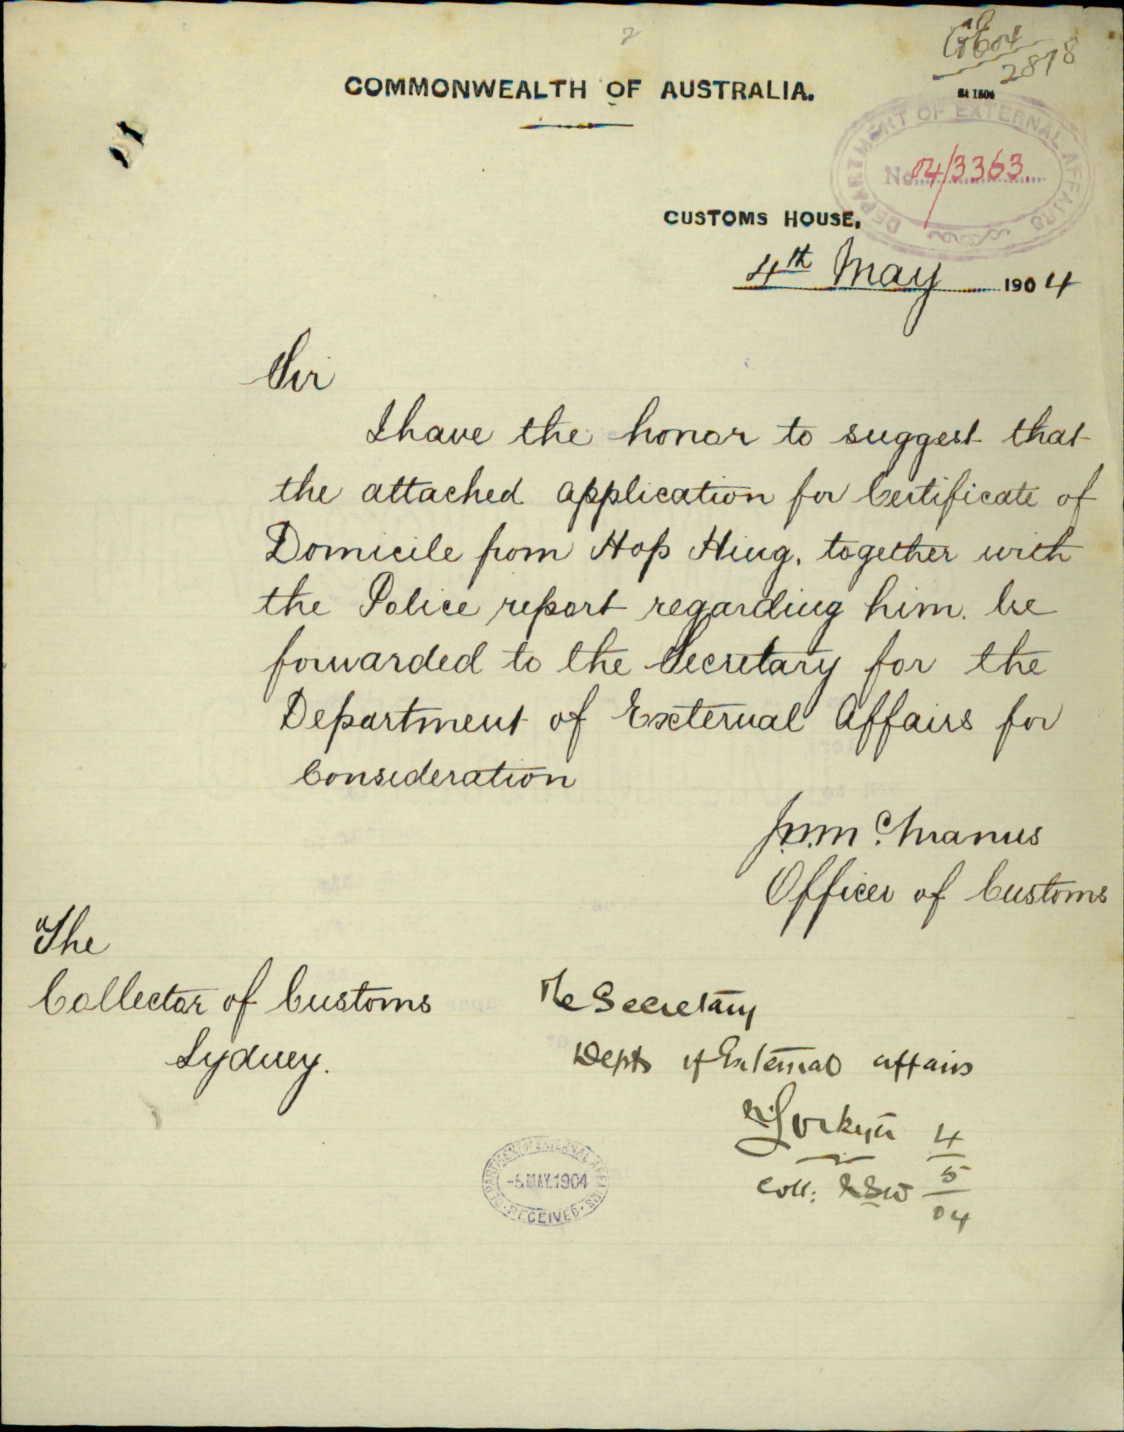 2
2878
COMMONWEALTH OF AUSTRALIA.
DEPARTMENT OF EXTERNAL AFFAIRS
No. 04/3363.
CUSTOMS HOUSE,
4th May 1904
Sir
I have the honor to suggest that
the attached application for Certificate of
Domicile from Hop Hing, together with
the Police report regarding him. be
forwarded to the Secretary for the
Department of External Affairs for
Consideration
McManus
Officer of Customs
The
Collector of Customs
Sydney.
The Secretary
Dept of External Affairs
4
Coll: NSW 5
04
DEPARTMENT OF EXTERNAL AFFAIRS
-5 MAY.1904
RECEIVED